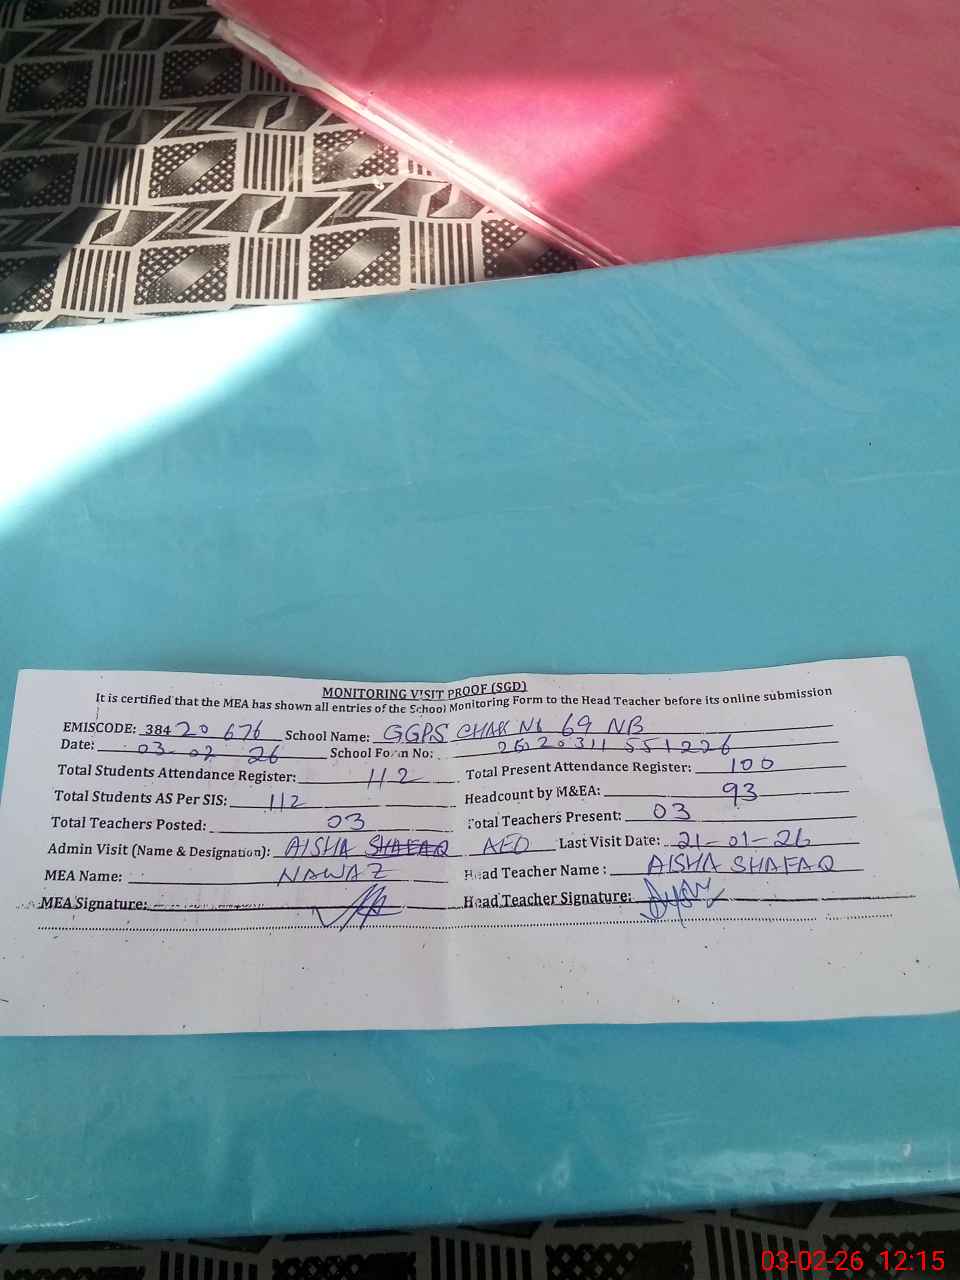 MONITORING VISIT PROOF (SGD)
It is certified that the MEA has shown all entries of the School Monitoring Form to the Head Teacher before its online submission
EMISCODE: 384 20 676 School Name: GGPS CHAK NO 69 NB
Date: 03-02-26 School Form No: 26020311551226
Total Students Attendance Register: 112 Total Present Attendance Register: 100
Total Students AS Per SIS: 112 Headcount by M&EA: 93
Total Teachers Posted: 03 Total Teachers Present: 03
Admin Visit (Name & Designation): AISHA SHAFAQ AEO Last Visit Date: 21-01-26
MEA Name: NAWAZ Head Teacher Name: AISHA SHAFAQ
MEA Signature: Head Teacher Signature:
03-02-26 12:15